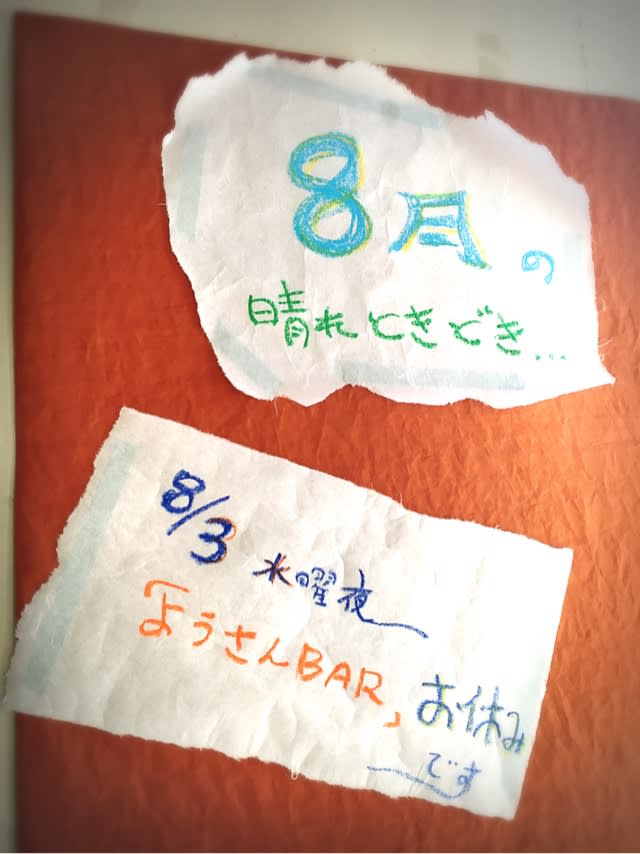 8月の
晴れときどき...
8/3 水曜夜
「ようさんBAR」お休み
です